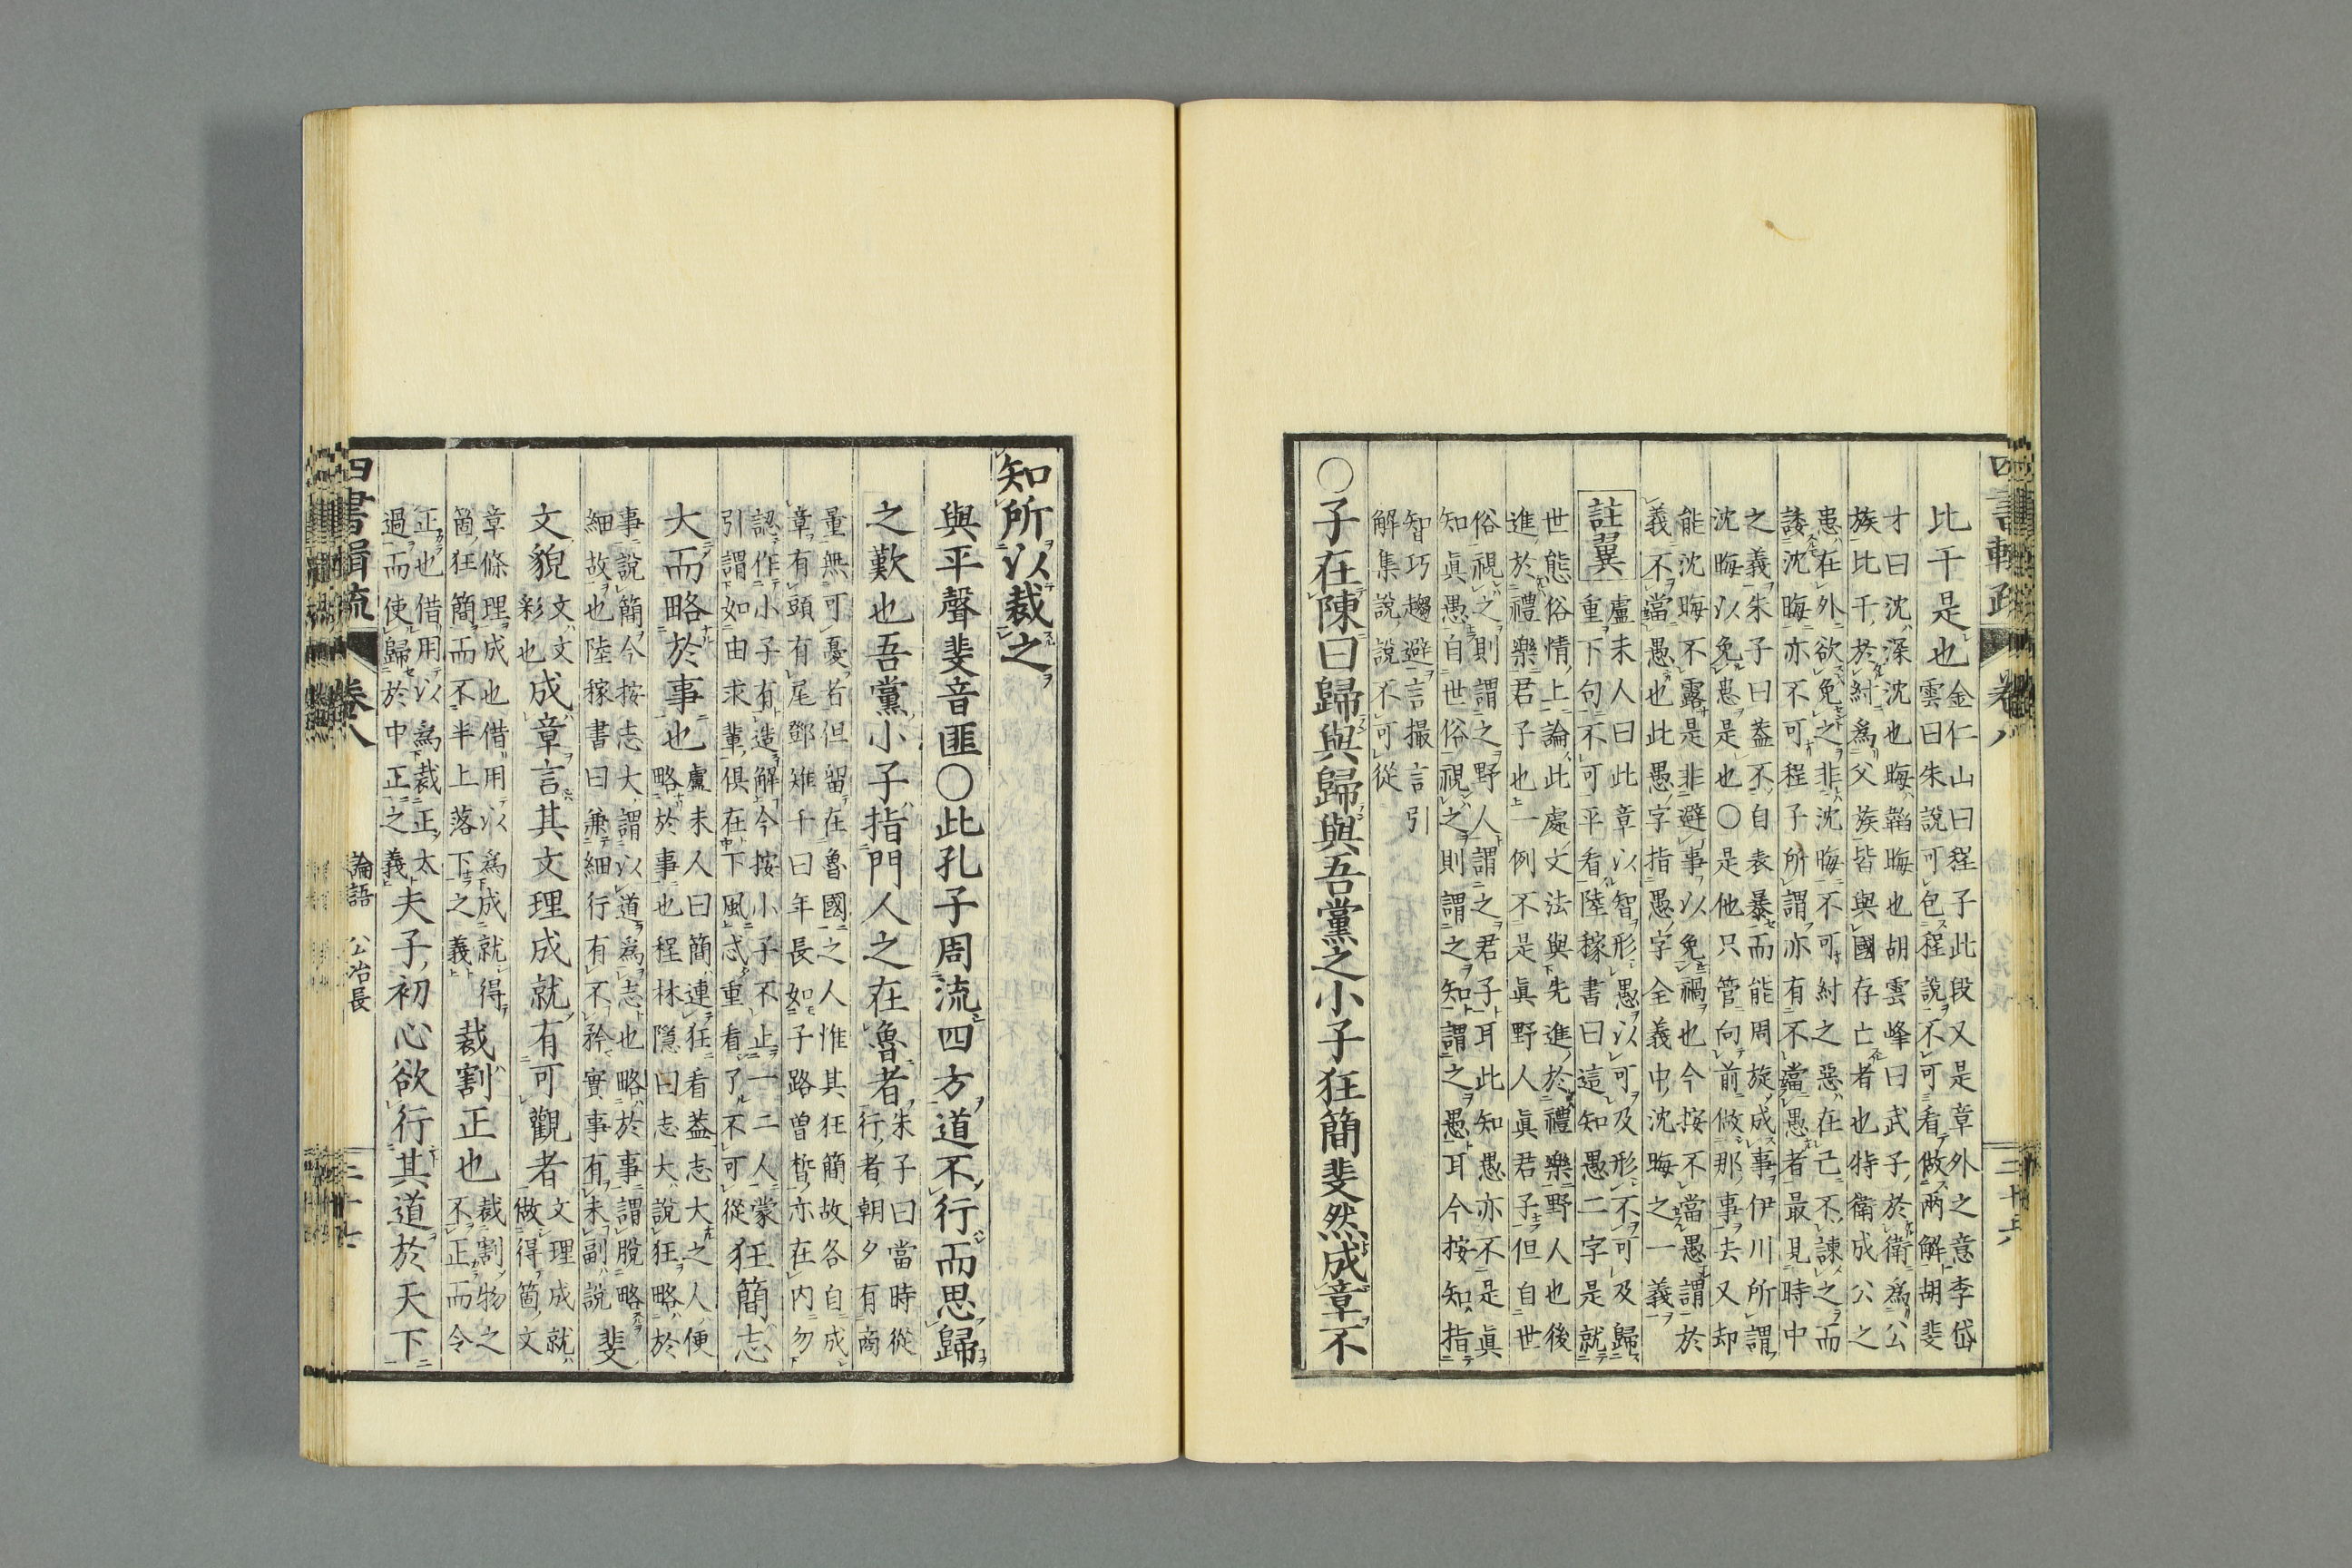 四書輯疏 卷八 二十六
比干是也 金仁山曰程子此段又是章外之意李岱
雲曰朱說可包程說不可看做兩解胡斐
才曰沈深沈也晦韜晦也胡雲峰曰武子於衛爲公
族比干於紂爲父族皆與國存亡者也特衛成公之
患在外欲免之非沈晦不可紂之惡在己不諫之而
諉沈晦亦不可程子所謂亦有不當愚者最見時中
之義朱子曰蓋不自表暴而能周旋成事伊川所謂
沈晦以免患是也○是他只管向前做那事去又却
能沈晦不露是非避事以免禍也今按不當愚謂於
義不當愚也此愚字指愚字全義中沈晦之一義
註翼 盧未人曰此章以智形愚以可及形不可及歸
重下句不可平看陸稼書曰這知愚二字是就
世態俗情上論此處文法與先進於禮樂野人也後
進於禮樂君子也一例不是眞野人眞君子但自世
俗視之則謂之野人謂之君子耳此知愚亦不是眞
知眞愚自世俗視之則謂之知謂之愚耳今按知指
智巧趨避言撮言引
解集說說不可從
○子在陳曰歸與歸與吾黨之小子狂簡斐然成章不
知所以裁之
與平聲斐音匪○此孔子周流四方道不行而思歸
之歎也吾黨小子指門人之在魯者 朱子曰當時從
行者朝夕有商
量無可憂者但留在魯國之人惟其狂簡故各自成
章有頭有尾鄧雉千曰年長如子路曾晳亦在内勿
認作小子有造解今按小子不止一二人蒙
引謂如由求輩俱在下風忒重看了不可從 狂簡志
大而略於事也 盧未人曰簡連狂看蓋志大之人便
略於事也程林隱曰志大說狂略於
事說簡今按志大謂以道爲志也略於事謂脫略
細故也陸稼書曰兼細行有不矜實事有未副說 斐
文貌 文文
彩也 成章言其文理成就有可觀者 文理成就
做得箇文
章條理成也借用以爲成就得
箇狂簡而不半上落下之義 裁割正也 裁割物之
不正而令
正也借用以爲裁正太
過而使歸於中正之義 夫子初心欲行其道於天下
四書輯疏 卷八 論語 公冶長 二十七